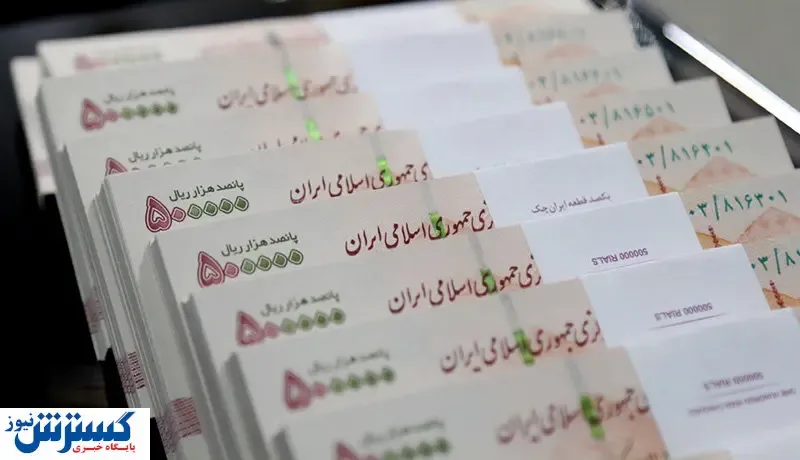 پانصد هزار ریال
۵۰۰۰۰۰
جمهوری اسلامی ایران
پانصد هزار ریال
۸۱۶۵۰۱
پانصد هزار ریال
۵۰۰۰۰۰
جمهوری اسلامی ایران
یکصد قطعه ایران چک
۰۳/۸۱۶۴۰۱
پانصد هزار ریال
۵۰۰۰۰۰
جمهوری اسلامی ایران
500000 RIALS
۰۳/۸۱۶۳۰۱
پانصد هزار ریال
۵۰۰۰۰۰
جمهوری اسلامی ایران
500000 RIALS
۰۳/۸۱۶
پانصد هزار ریال
۵۰۰۰۰۰
جمهوری اسلامی ایران
500000 RIALS
جمهوری اسلامی ایران
گسترش نیوز
پایگاه خبری